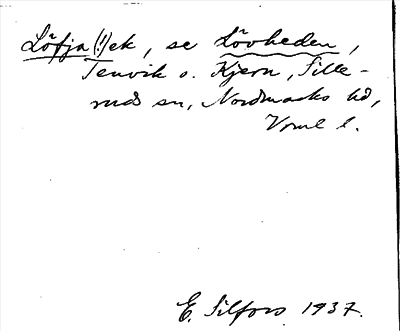 Löfja(!)ek, se Lövheden,
Tenvik o. Kjern, Sille-
ruds sn, Nordmarks hd,
Vrml l.
E. Silfors 1937.